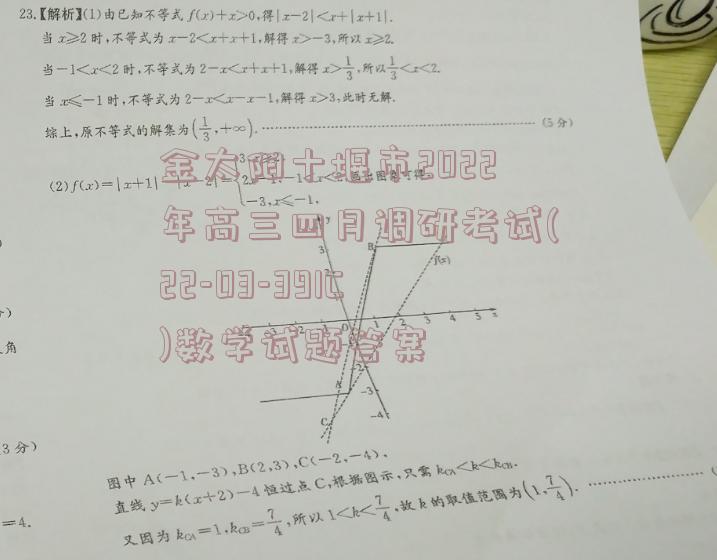 23.【解析】(1)由已知不等式 f(x)+x>0,得|x-2|<x+|x+1|.
当 x≥2 时,不等式为 x-2<x+x+1,解得 x>-3,所以 x≥2.
当-1<x<2 时,不等式为 2-x<x+x+1,解得 x>1/3,所以1/3<x<2.
当 x≤-1 时,不等式为 2-x<x-x-1,解得 x>3,此时无解.
综上,原不等式的解集为(1/3,+∞). (5分)
3,x≥2,
(2)f(x)=|x+1|-|x-2|={2x-1,-1<x<2,画出图象可得,
-3,x≤-1,
金太阳十堰市2022
年高三四月调研考试(
22-03-391C
)数学试题答案
y
3
B
f(x)
0 1 2 3 4 5 x
角
A
-2
-3
C
-4
3分)
图中 A(-1,-3),B(2,3),C(-2,-4),
直线 y=k(x+2)-4 恒过点 C,根据图示,只需 kCA<k<kCB.
=4.
又因为 kCA=1,kCB=7/4,所以 1<k<7/4,故 k 的取值范围为(1,7/4).